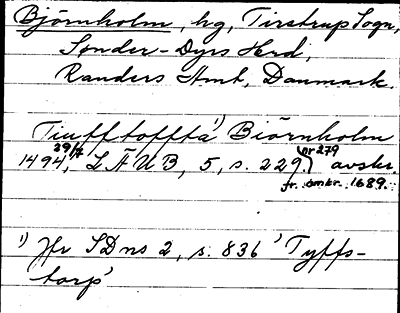 Björnholm, hg, Tirstrup Sogn,
Sønder-Dyrs Hrd,
Randers Amt, Danmark.
Tufftofftä¹⁾ Biörnholm
1494 29/7, LÄUB, 5, s. 229. (nr 279) avskr.
fr. omkr. 1689.
¹⁾ Jfr SDns 2, s. 836 'Tyffs-
torp'